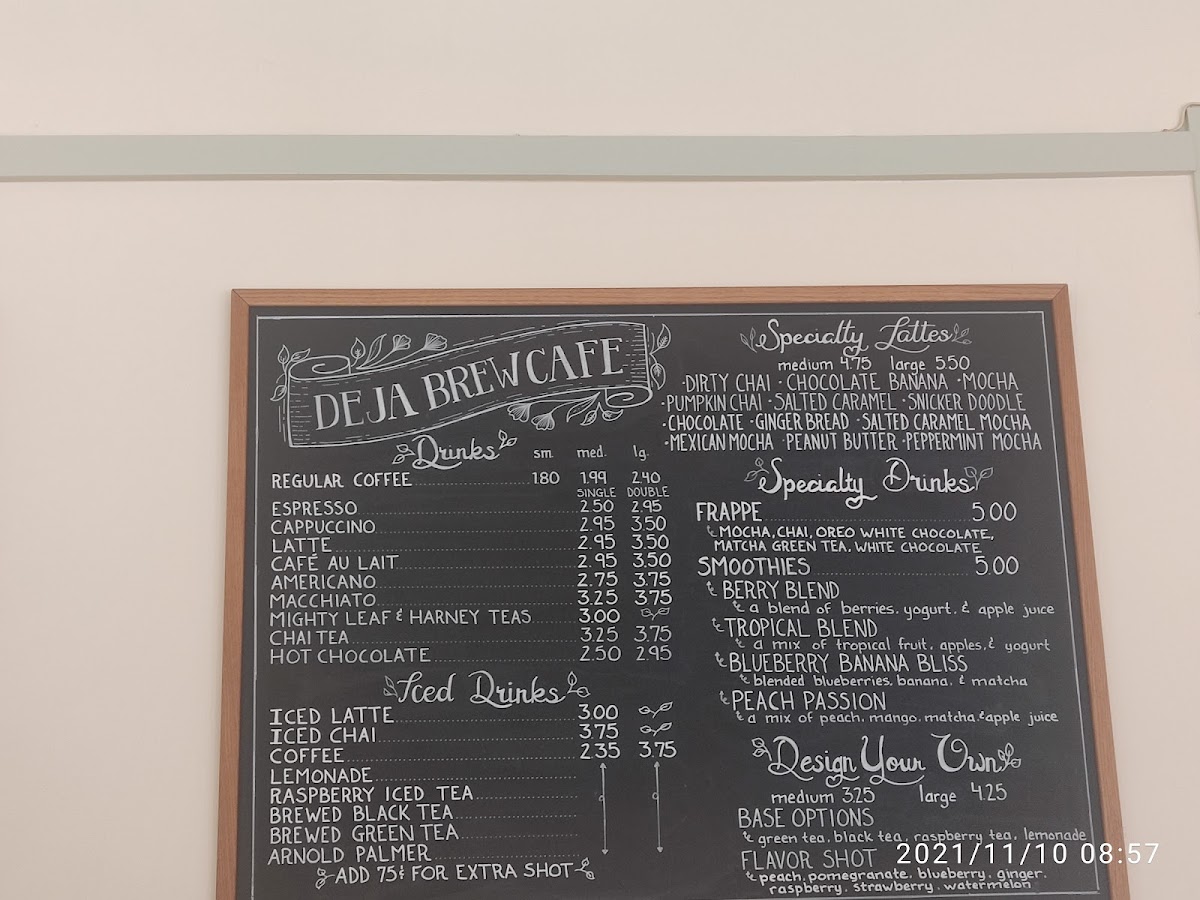 DEJA BREW CAFE
Drinks sm. med. lg.
REGULAR COFFEE 180 1.99 2.40
SINGLE DOUBLE
ESPRESSO 2.50 2.95
CAPPUCCINO 2.95 3.50
LATTE 2.95 3.50
CAFÉ AU LAIT 2.95 3.50
AMERICANO 2.75 3.75
MACCHIATO 3.25 3.75
MIGHTY LEAF & HARNEY TEAS 3.00
CHAI TEA 3.25 3.75
HOT CHOCOLATE 2.50 2.95
Iced Drinks
ICED LATTE 3.00
ICED CHAI 3.75
COFFEE 2.35 3.75
LEMONADE
RASPBERRY ICED TEA
BREWED BLACK TEA
BREWED GREEN TEA
ARNOLD PALMER
ADD 75¢ FOR EXTRA SHOT
Specialty Lattes
medium 4.75 large 5.50
·DIRTY CHAI ·CHOCOLATE BANANA ·MOCHA
·PUMPKIN CHAI ·SALTED CARAMEL ·SNICKER DOODLE
·CHOCOLATE ·GINGER BREAD ·SALTED CARAMEL MOCHA
·MEXICAN MOCHA ·PEANUT BUTTER ·PEPPERMINT MOCHA
Specialty Drinks
FRAPPE 5.00
MOCHA, CHAI, OREO WHITE CHOCOLATE,
MATCHA GREEN TEA, WHITE CHOCOLATE
SMOOTHIES 5.00
BERRY BLEND
a blend of berries, yogurt, & apple juice
TROPICAL BLEND
a mix of tropical fruit, apples, & yogurt
BLUEBERRY BANANA BLISS
blended blueberries, banana, & matcha
PEACH PASSION
a mix of peach, mango, matcha & apple juice
Design Your Own
medium 3.25 large 4.25
BASE OPTIONS
green tea, black tea, raspberry tea, lemonade
FLAVOR SHOT
peach, pomegranate, blueberry, ginger,
raspberry, strawberry, watermelon
2021/11/10 08:57